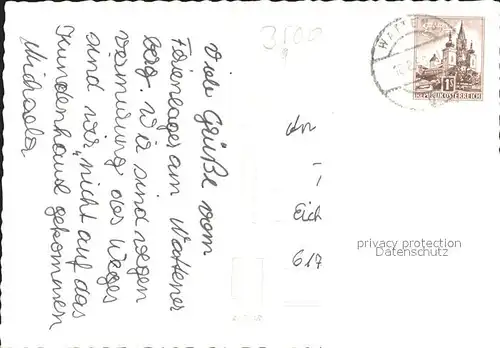 Viele Grüße vom
Ferienlager am Wattener
berg. Wir sind wegen
des Weges
sind wir nicht auf das
gekommen
Michaela
3500
WATTE
1S
REPUBLIK ÖSTERREICH
An
Eich
617
privacy protection
Datenschutz